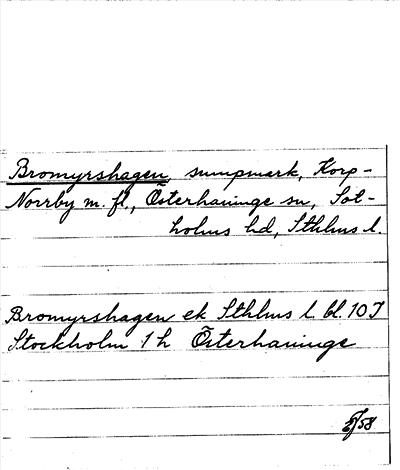 Bromyrshagen, sumpmark, Korp-
Norrby m. fl., Österhaninge sn, Sot-
holms hd, Sthlms l.
Bromyrshagen ek Sthlms l. bl. 10 J
Stockholm 1 h Österhaninge
58